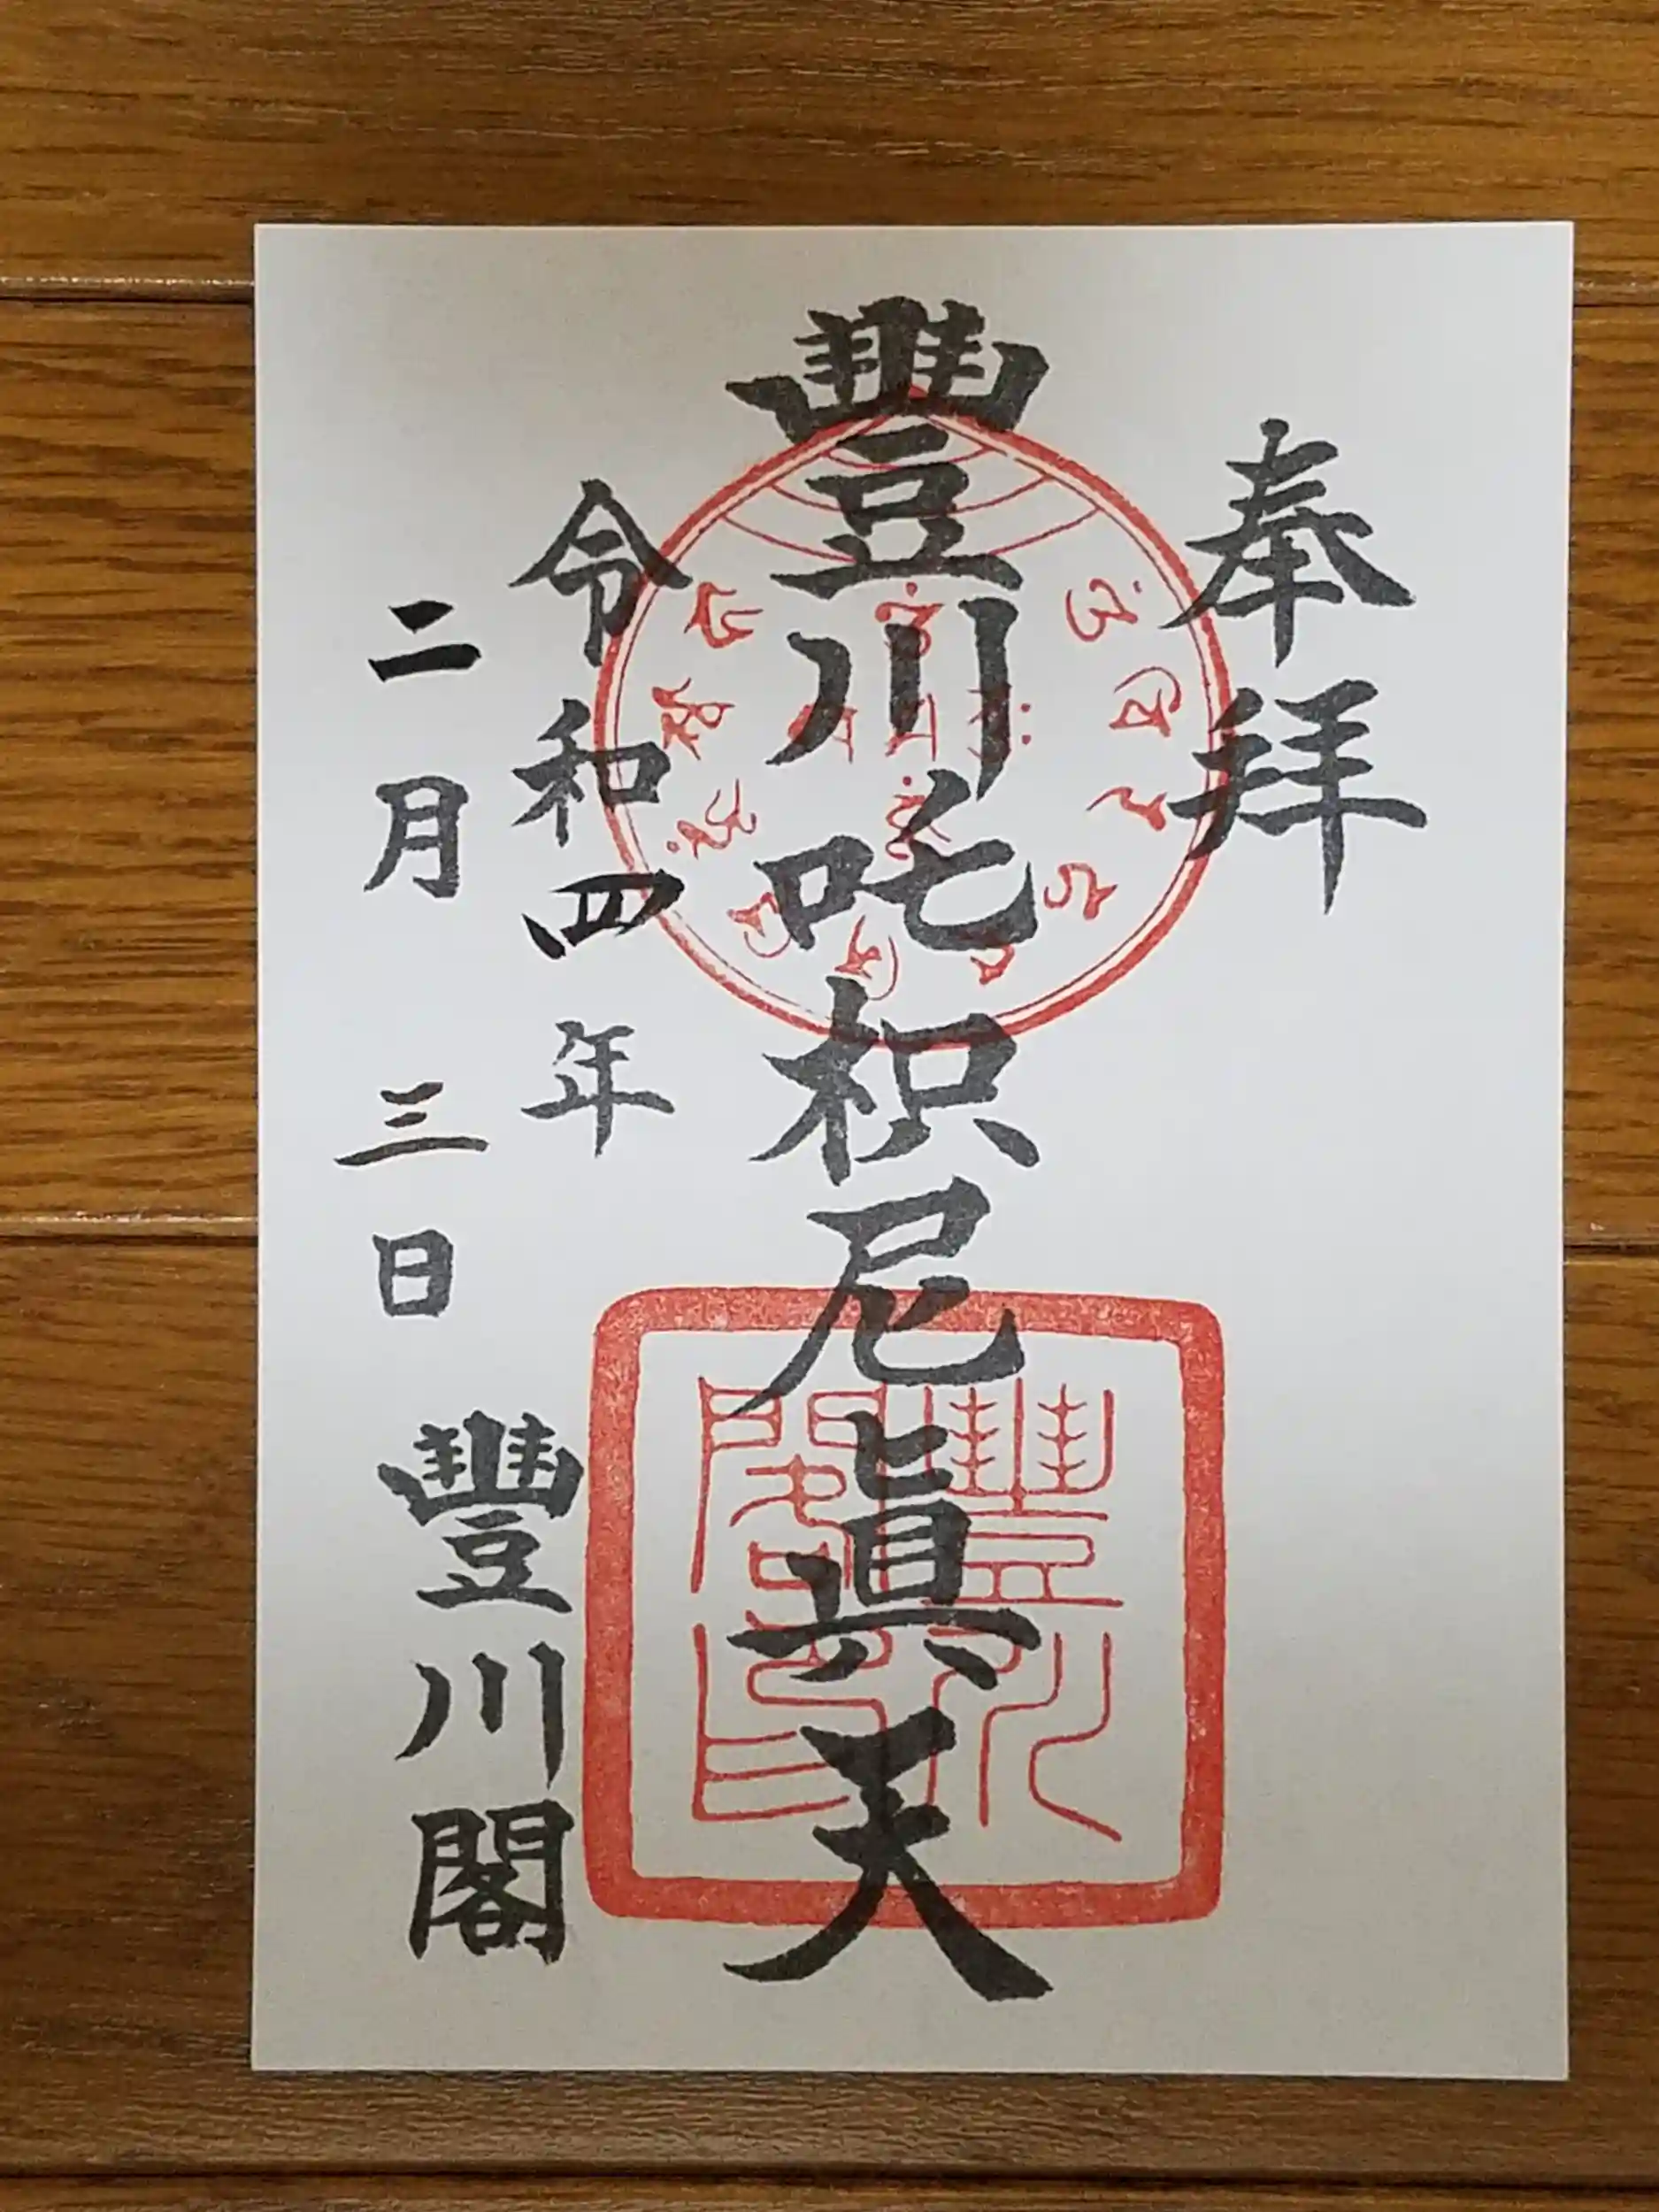 奉拝
豐川吒枳尼眞天
令和四年
二月三日
豐川閣
豐川閣印